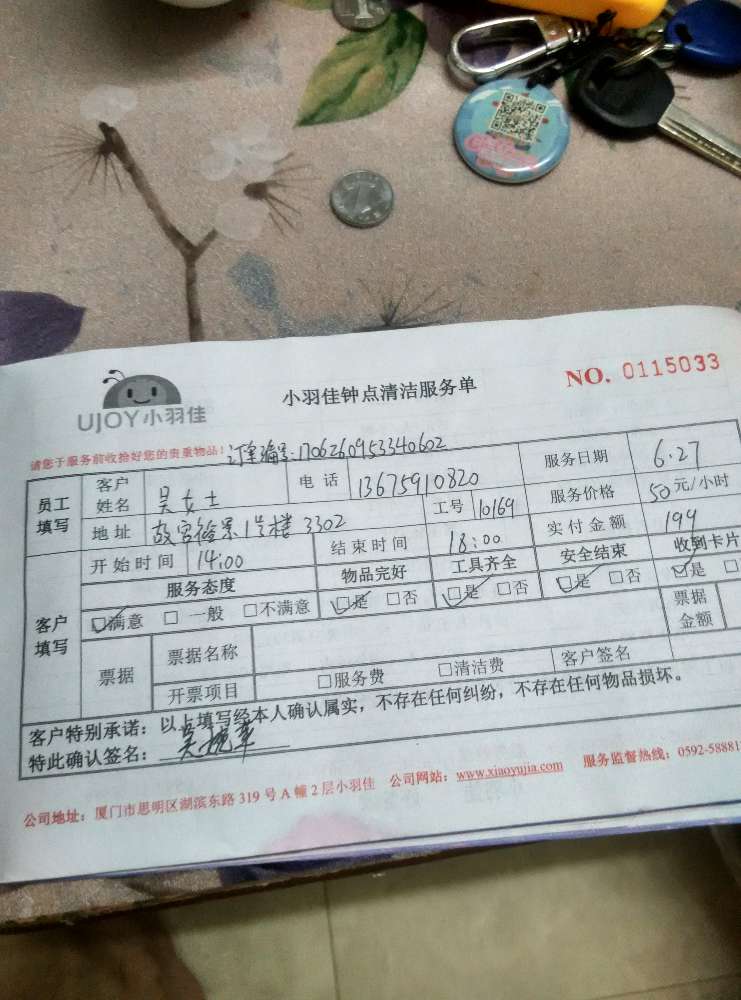 UJOY小羽佳
小羽佳钟点清洁服务单
NO. 0115033
请您于服务前收拾好您的贵重物品!
订单编号:1706260953340602
员工填写 客户姓名 吴女士 电话 13675910820 服务日期 6.27
地址 故宫裕景1号楼 3302 工号 10169 服务价格 50元/小时
客户填写 开始时间 14:00 结束时间 18:00 实付金额 199
服务态度 物品完好 工具齐全 安全结束 收到卡片
☑满意 □一般 □不满意 ☑是 □否 ☑是 □否 ☑是 □否 ☑是 □
票据 票据名称 票据金额
开票项目 □服务费 □清洁费 客户签名
客户特别承诺:以上填写经本人确认属实,不存在任何纠纷,不存在任何物品损坏。
特此确认签名:吴
公司地址:厦门市思明区湖滨东路 319 号 A 幢 2 层小羽佳 公司网站:www.xiaoyujia.com 服务监督热线:0592-58881